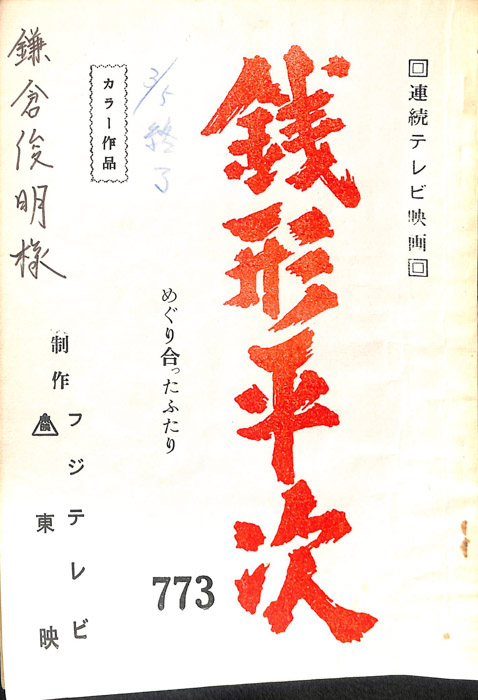 回連続テレビ映画回
銭形平次
めぐり合ったふたり
773
3/5終了
カラー作品
鎌倉俊明様
制作
フジテレビ
東映